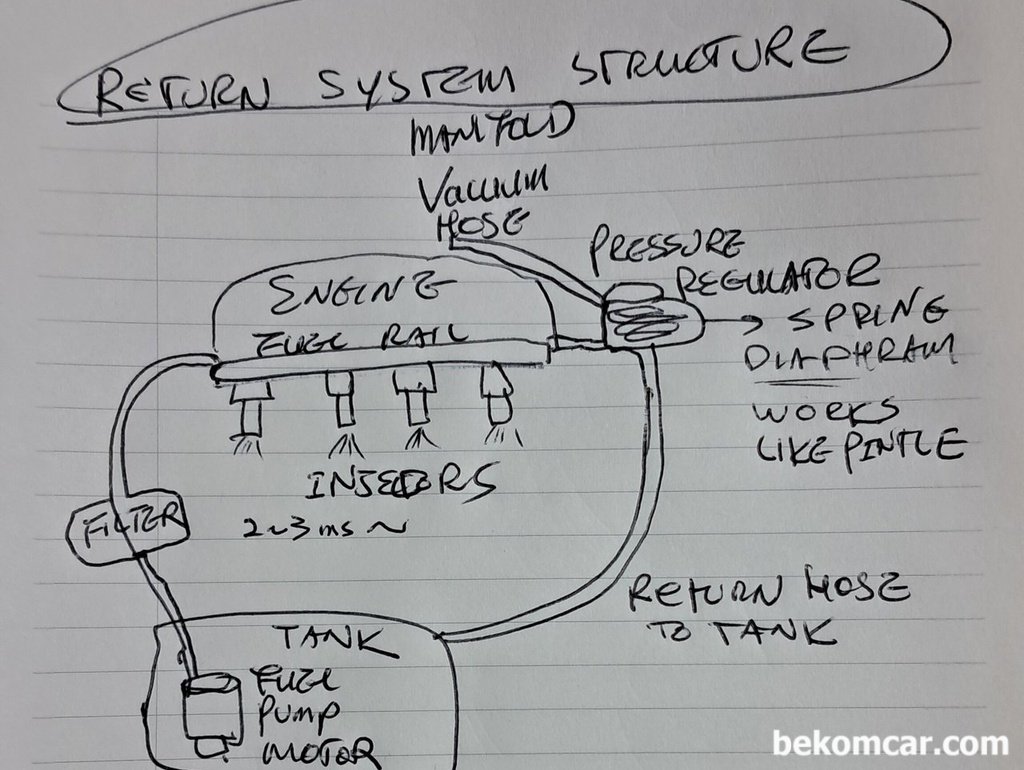 RETURN SYSTEM STRUCTURE
MANIFOLD
Vacuum
HOSE
PRESSURE
REGULATOR
ENGINE
FUEL RAIL
SPRING
DIAPHRAM
WORKS
LIKE PINTLE
INJECTORS
2~3ms~
FILTER
RETURN HOSE
TO TANK
TANK
FUEL
PUMP
MOTOR
bekomcar.com